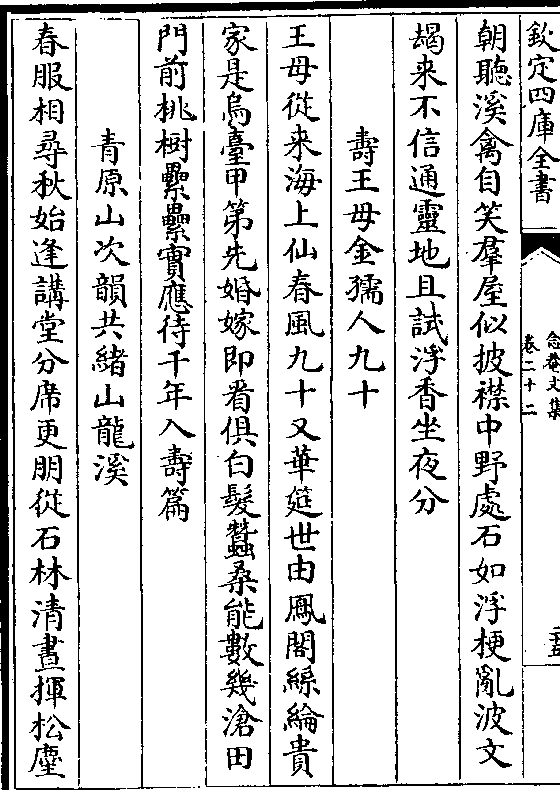 欽定四庫全書
念菴文集
卷二十二
朝聽溪禽自笑羣屋似披襟中野處石如浮梗亂波文
朅来不信通靈地且試浮香坐夜分
壽王母金孺人九十
王母從来海上仙春風九十又華筵世由鳳閣絲綸貴
家是烏臺甲第先婚嫁即看俱白髮蠶桑能數幾滄田
門前桃樹纍纍實應待千年入壽篇
青原山次韻共緒山龍溪
春服相尋秋始逢講堂分席更朋從石林清晝揮松麈